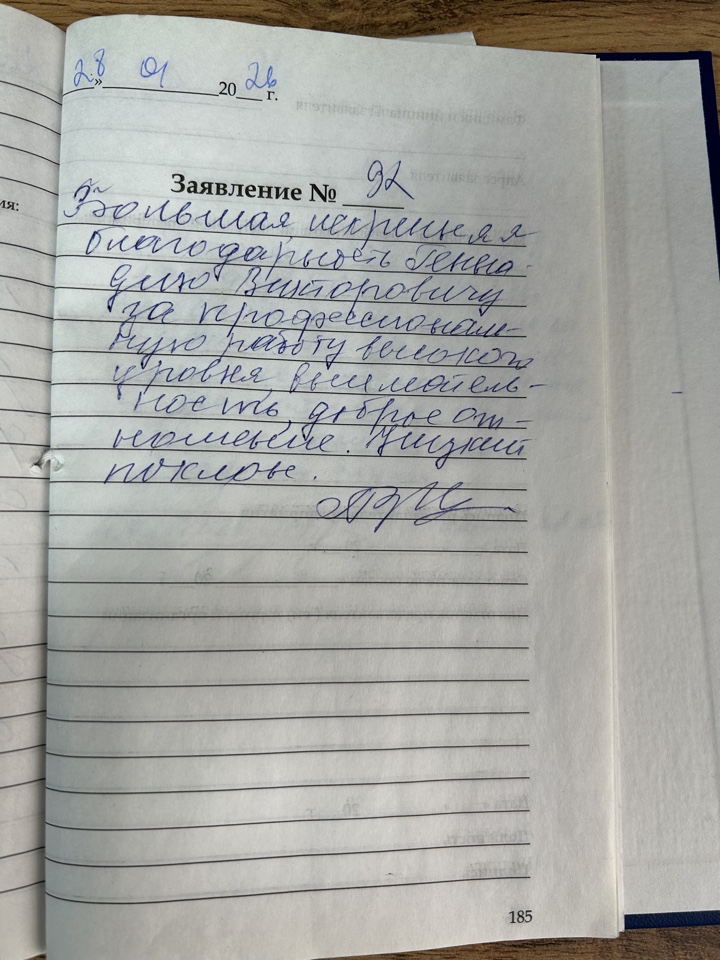 28» 01 2026 г.
Заявление № 92
ия:
Большая искренняя
благодарность Генна-
дию Викторовичу
за профессиональ-
ную работу высокого
уровня, внематель-
ность, доброе от-
ношение. Низкий
поклон.
185